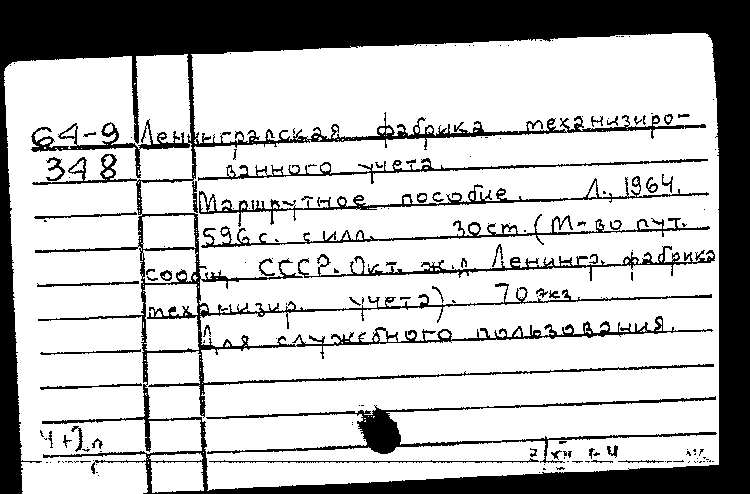 64-9 Ленинградская фабрика механизиро-
348 ванного учета.
Маршрутное пособие. Л., 1964.
596 с. с илл. 30 см. (М-во пут.
сообщ. СССР. Окт. ж.д. Ленингр. фабрика
механизир. учета). 70 экз.
Для служебного пользования.
4+2л